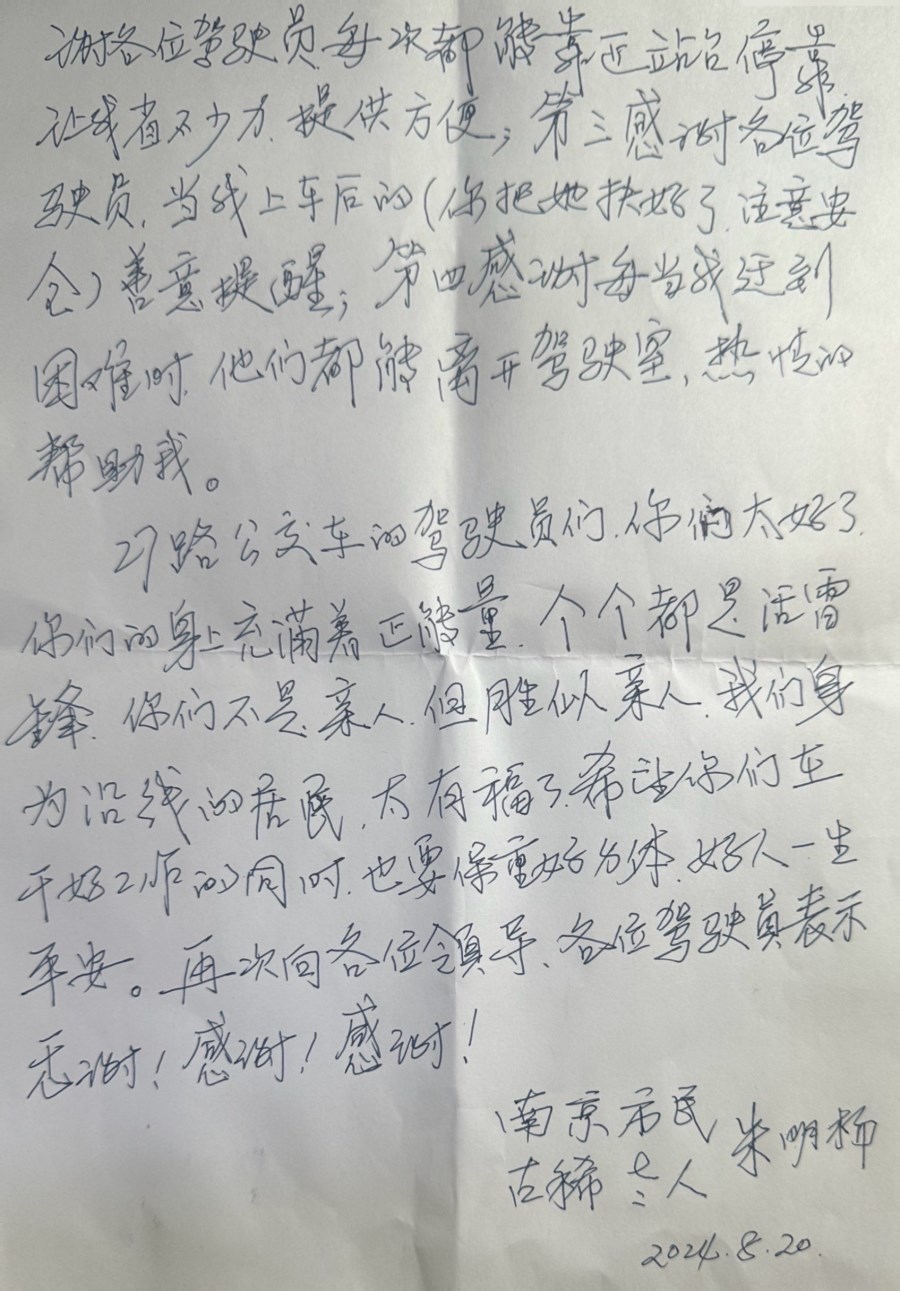 谢各位驾驶员每次都能靠近站台停靠,
让我省不少力,提供方便;第三感谢各位驾
驶员,当我上车后的(你把她扶好了,注意安
全)善意提醒;第四感谢每当我迂到
困难时,他们都能离开驾驶室,热情的
帮助我。
27路公交车的驾驶员们,你们太好了,
你们的身上充满着正能量,个个都是活雷
锋,你们不是亲人,但胜似亲人,我们身
为沿线的居民,太有福了,希望你们在
干好工作的同时,也要保重好身体,好人一生
平安。再次向各位领导、各位驾驶员表示
感谢!感谢!感谢!
南京市民
古稀 人 朱明杨
2024.8.20.